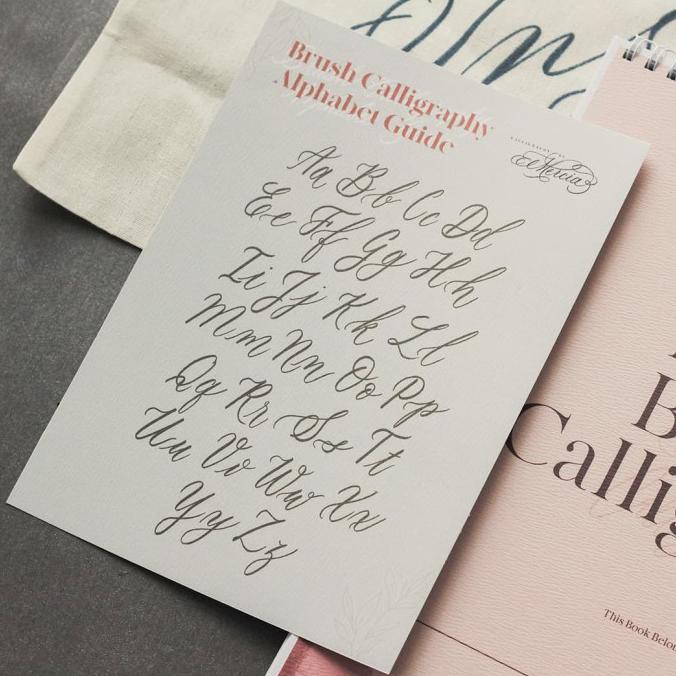 Brush Calligraphy
Alphabet Guide
Aa Bb Cc Dd
Ee Ff Gg Hh
Ii Jj Kk Ll
Mm Nn Oo Pp
Qq Rr Ss Tt
Uu Vv Ww Xx
Yy Zz
B
Callig
This Book Belon